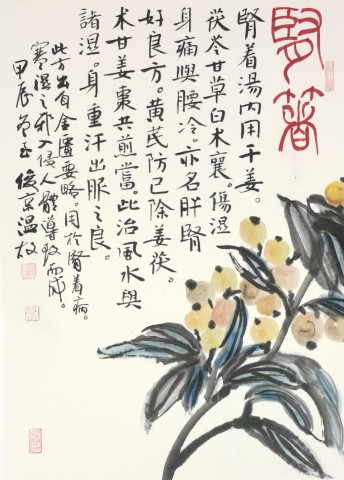 腎著
腎着湯內用干姜。
茯苓甘草白术襄。傷濕
身痛與腰冷。亦名肝腎
好良方。黃芪防已除姜茯。
术甘姜棗共煎當。此治風水與
諸濕。身重汗出服之良。
此方出自金匱要略。用於腎着病。
寒濕之邪入侵人體導致而成。
甲辰